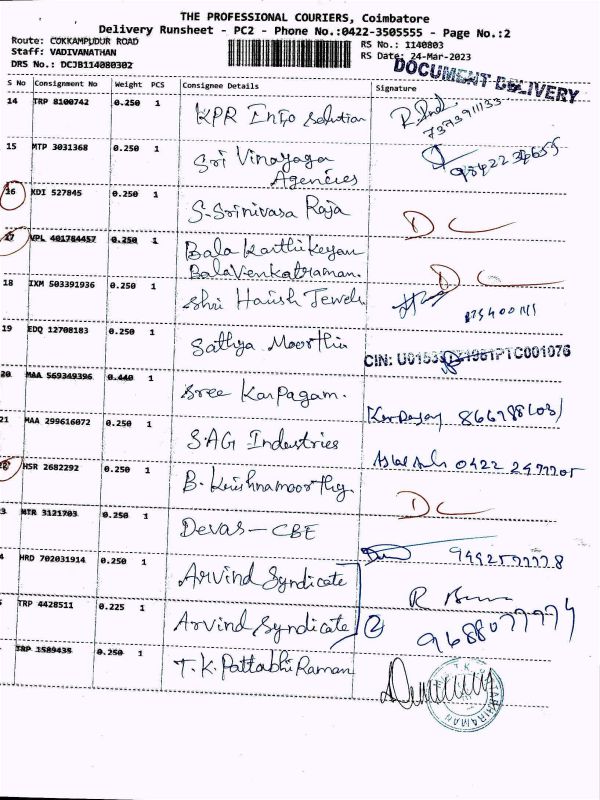 THE PROFESSIONAL COURIERS, Coimbatore
Delivery Runsheet - PC2 - Phone No.:0422-3505555 - Page No.:2
Route: COKKAMPUDUR ROAD
RS No.: 1140803
Staff: VADIVANATHAN
RS Date: 24-Mar-2023
DRS No.: DCJB114080302
DOCUMENT DELIVERY
S No Consignment No Weight PCS Consignee Details Signature
14 TRP 8100742 0.250 1 KPR Info solution
7373911133
15 MTP 3031368 0.250 1 Sri Vinayaga
Agencies
16 KDI 527845 0.250 1 S. Srinivasa Raja DC
17 VPL 401784457 0.250 1 Bala Karthikeyan
BalaVenkatraman. DC
18 IXM 503391936 0.250 1 Shri Harish Jewels
19 EDQ 12708183 0.250 1 Sathya Moorthi
20 MAA 569349396 0.440 1 Sree Karpagam.
21 MAA 299616072 0.250 1 S.AG Industries
HSR 2682292 0.250 1 B. Krishnamoorthy. DC
3 MTR 3121703 0.250 1 Devas - CBE
4 HRD 702031914 0.250 1 Arvind Syndicate
TRP 4428511 0.225 1 Arvind Syndicate 2
9688077774
TRP 1589435 0.250 1 T.K. Pattabhi Raman